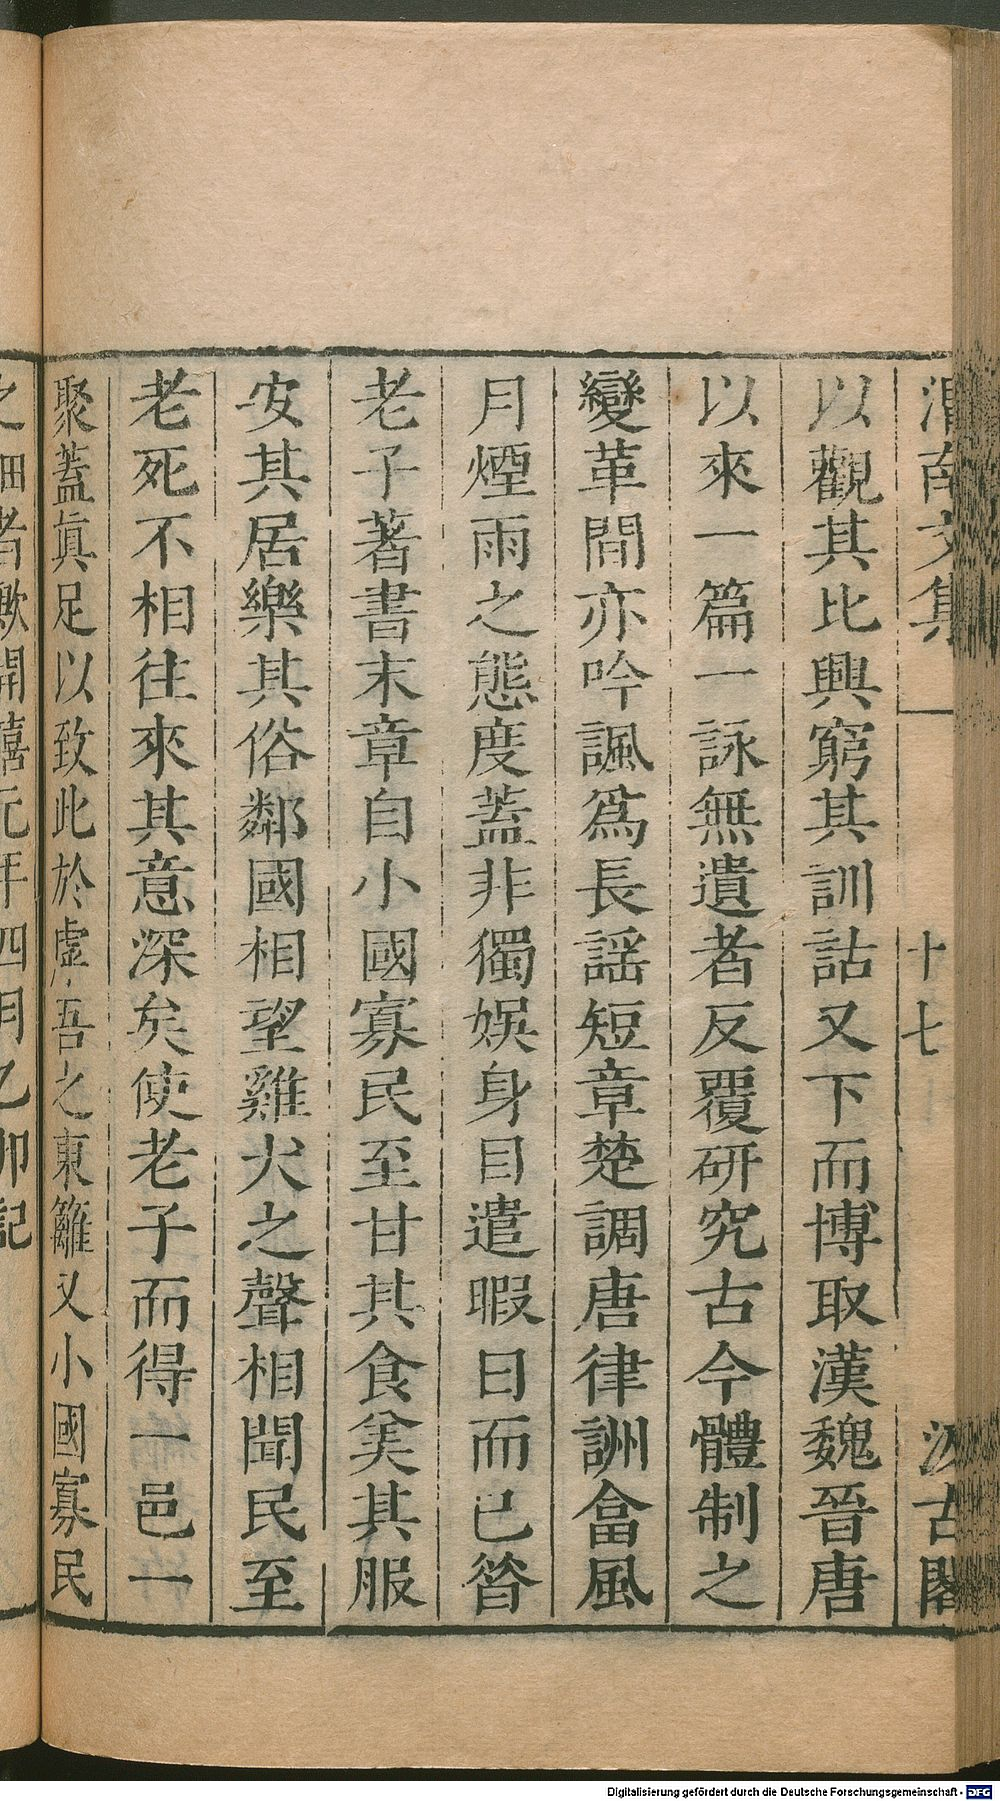 渭南文集
十七
汲古閣
以觀其比興窮其訓詁又下而博取漢魏晉唐
以來一篇一詠無遺者反覆研究古今體制之
變革間亦吟諷爲長謡短章楚調唐律詶畣風
月煙雨之態度蓋非獨娛身目遣暇日而已昝
老子著書末章自小國寡民至甘其食羙其服
安其居樂其俗鄰國相望雞犬之聲相聞民至
老死不相往來其意深矣使老子而得一邑一
聚蓋眞足以致此於虖吾之東籬又小國寡民
之細者歟開禧元年四月乙卯記
Digitalisierung gefördert durch die Deutsche Forschungsgemeinschaft - DFG